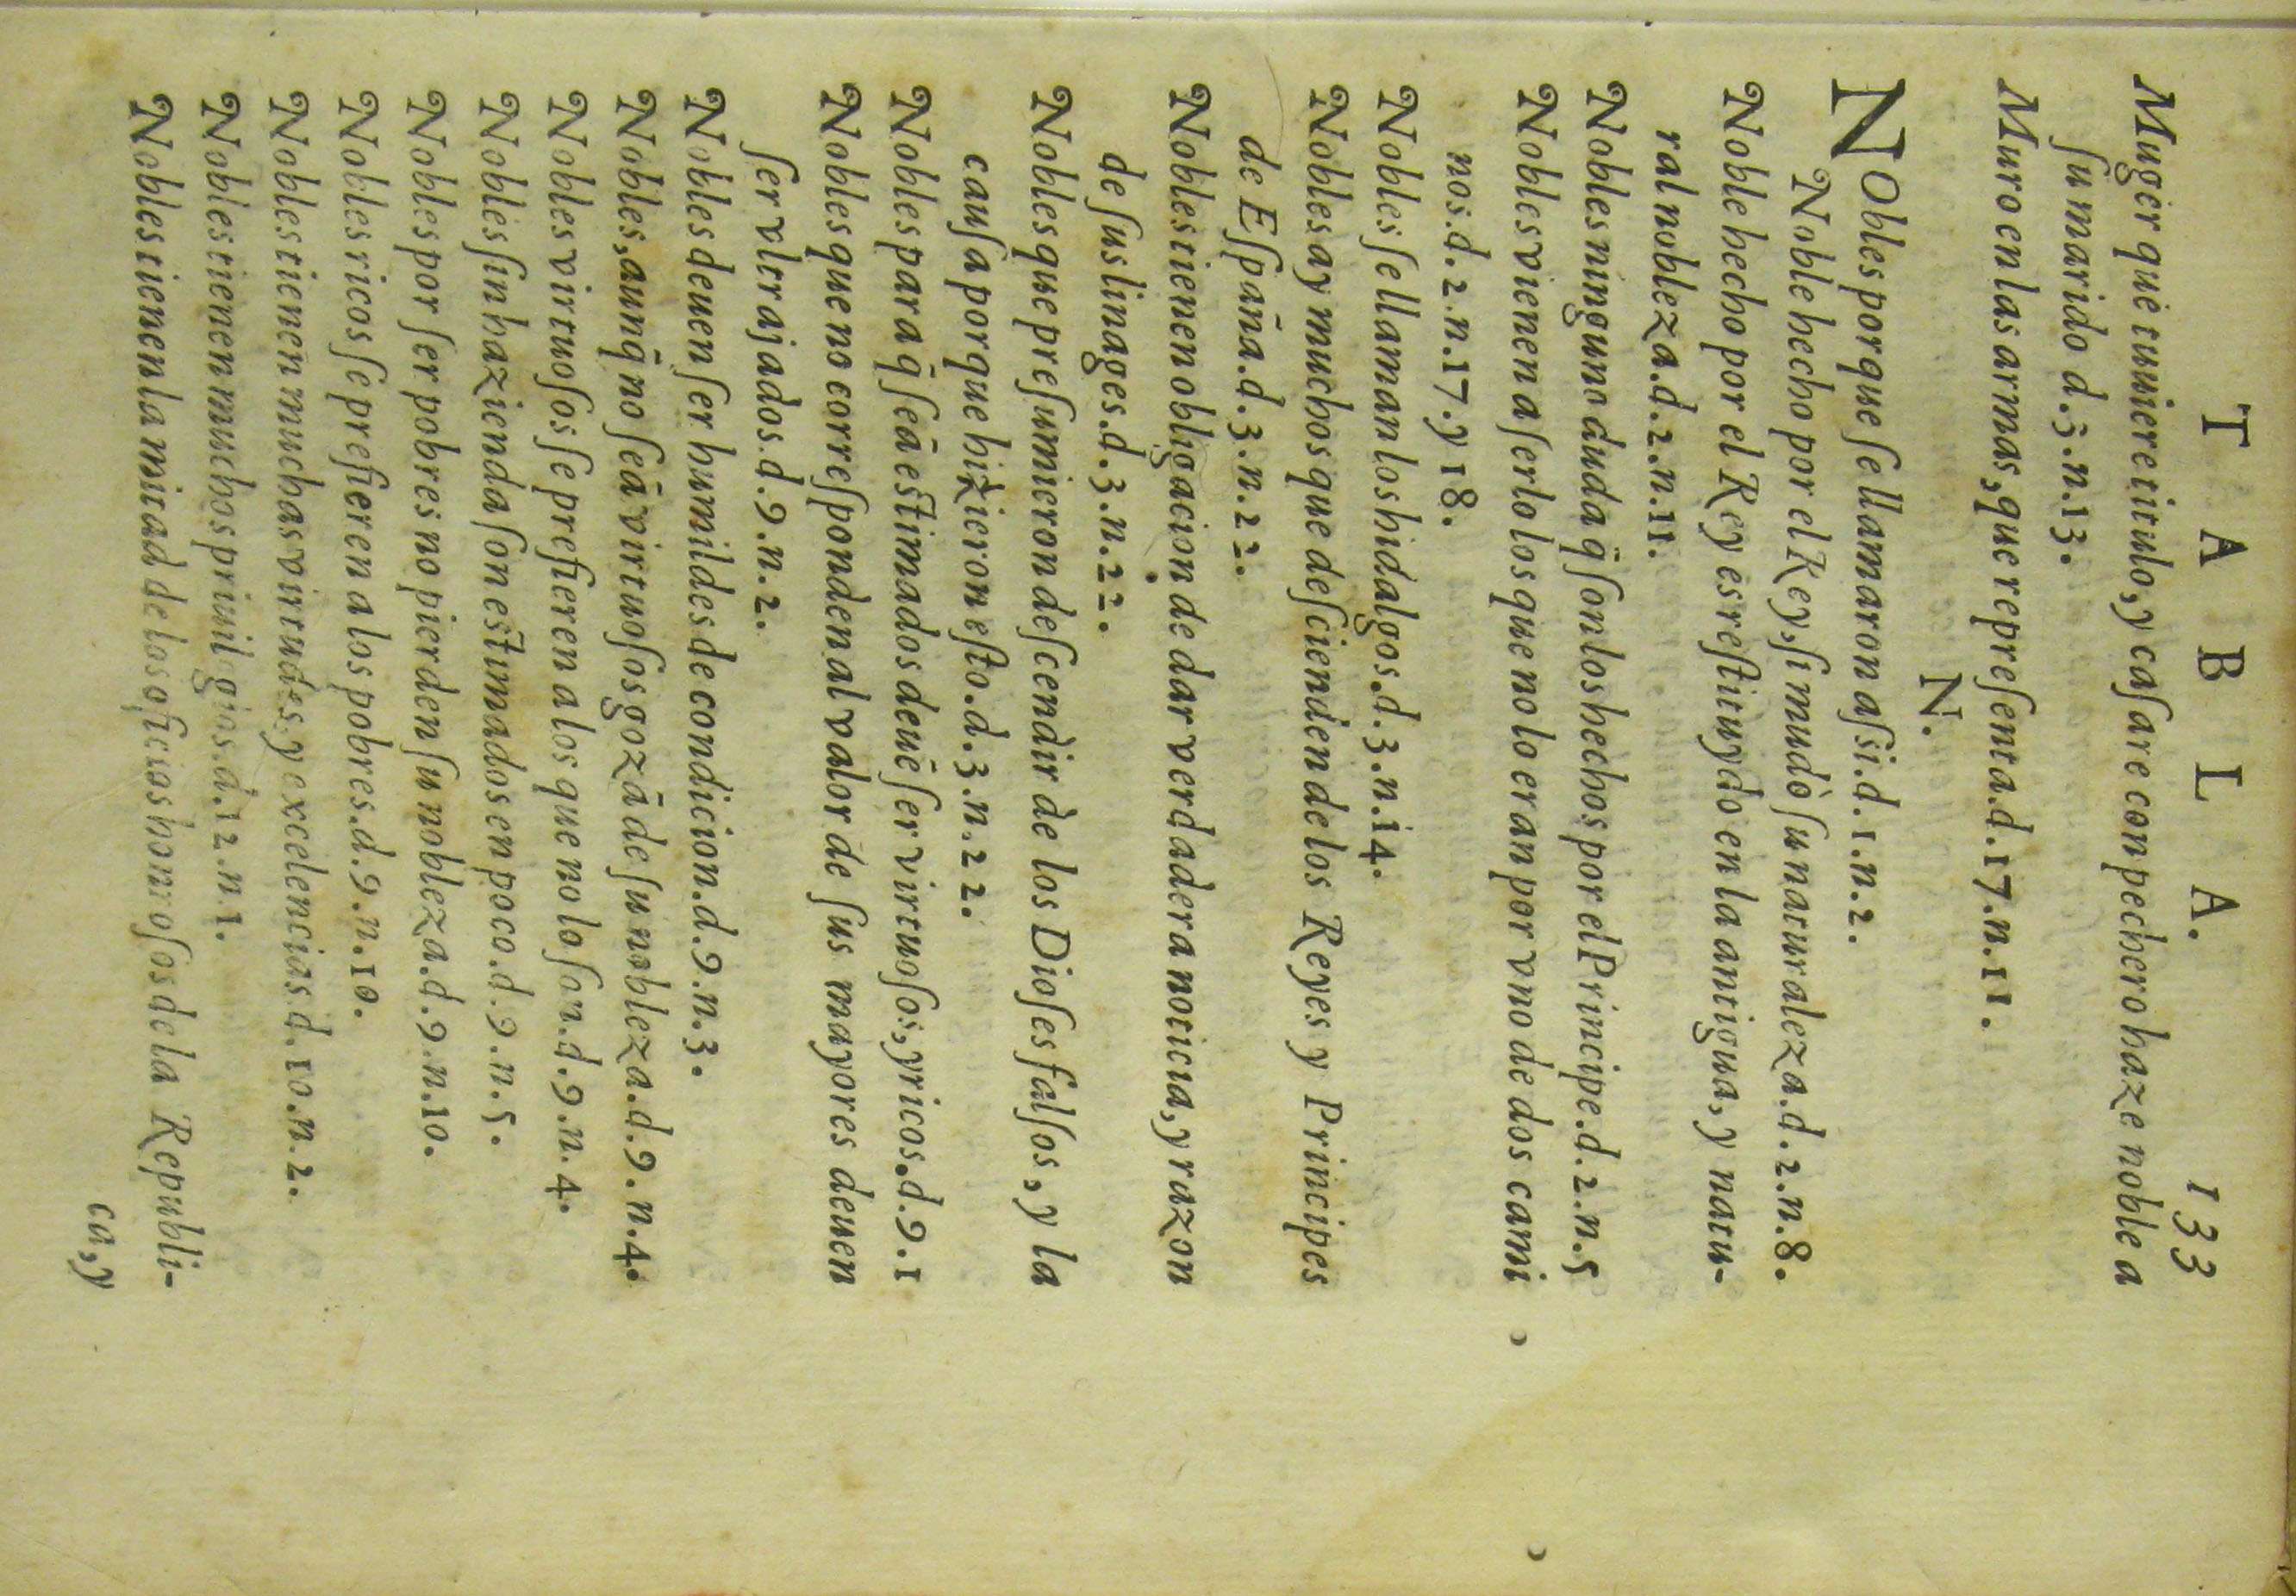 T A B L A. 133
Muger que tuuiere titulo, y caſare con pechero haze noble a
ſu marido d.3.n.13.
Muro en las armas, que repreſenta.d.17.n.11.
N.
NObles porque ſe llamaron aſsi.d.1.n.2.
Noble hecho por el Rey, ſi mudò ſu naturaleza.d.2.n.8.
Noble hecho por el Rey es reſtituydo en la antigua, y natu-
ral nobleza.d.2.n.11.
Nobles ninguno duda q̄ ſon los hechos por el Principe.d.2.n.5
Nobles vienen a ſerlo los que no lo eran por vno de dos cami
nos.d.2.n.17.y 18.
Nobles ſe llaman los hidalgos.d.3.n.14.
Nobles ay muchos que deſcienden de los Reyes y Principes
de Eſpaña.d.3.n.22.
Nobles tienen obligacion de dar verdadera noticia, y razon
de ſus linages.d.3.n.22.
Nobles que preſumieron deſcendir de los Dioſes falſos, y la
cauſa porque hizieron eſto.d.3.n.22.
Nobles para q̄ ſeā eſtimados deuē ſer virtuoſos, y ricos.d.9.1
Nobles que no correſponden al valor de ſus mayores deuen
ſer vltrajados.d.9.n.2.
Nobles deuen ſer humildes de condicion.d.9.n.3.
Nobles, aunq̄ no ſeā virtuoſos gozā de ſu nobleza.d.9.n.4.
Nobles virtuoſos ſe prefieren a los que no lo ſon.d.9.n.4.
Nobles ſin hazienda ſon eſtimados en poco.d.9.n.5.
Nobles por ſer pobres no pierden ſu nobleza.d.9.n.10.
Nobles ricos ſe prefieren a los pobres.d.9.n.10.
Nobles tienen muchas virtudes, y excelencias d.10.n.2.
Nobles tienen muchos priuilgios.d.12.n.1.
Nobles tienen la mitad de los oficios honroſos de la Republi-
ca, y